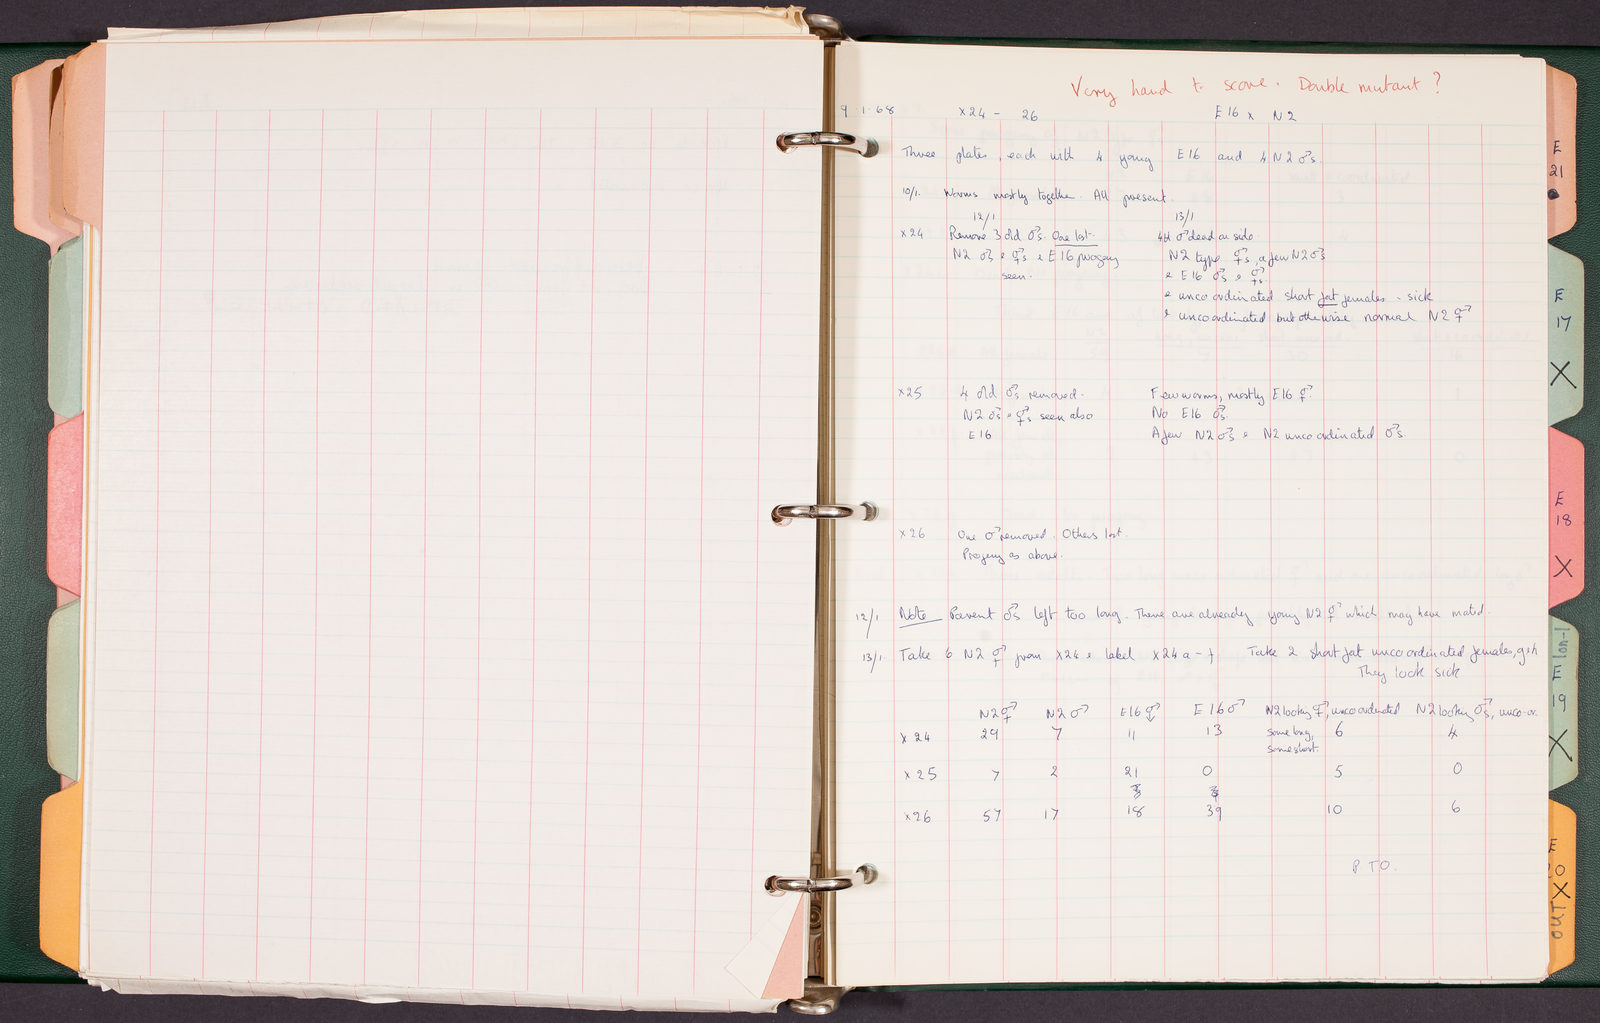 Very hard to score. Double mutant?
9.1.68 X24 - 26 E16 x N2
Three plates, each with 4 young E16 and 4 N2 ♂s.
10/1. Worms mostly together. All present.
12/1 13/1
X24 Remove 3 old ♂s. One lost. 4th ♂ dead on side.
N2 ♂s & ⚥s & E16 progeny N2 type ⚥s, a few N2 ♂s
seen. & E16 ♂s & ⚥s.
& uncoordinated short fat females - sick
& uncoordinated but otherwise normal N2 ⚥
X25 4 old ♂s removed. Few worms, mostly E16 ⚥.
N2 ♂s & ⚥s seen also No E16 ♂s.
E16 A few N2 ♂s & N2 uncoordinated ♂s.
X26 One ♂ removed. Others lost.
Progeny as above.
12/1 Note Parent ♂s left too long. There are already young N2 ⚥ which may have mated.
13/1 Take 6 N2 ⚥ from X24 & label X24a-f Take 2 short fat uncoordinated females, g&h
They look sick
N2⚥ N2♂ E16⚥ E16♂ N2 looking ⚥, uncoordinated N2 looking ♂s, unco-or.
X24 29 7 11 13 some long, 6 4
some short.
X25 7 2 21 0 5 0
X26 57 17 18 39 10 6
P T O.
E
21
E
17
X
E
18
X
lon-1
E
19
X
E
20
X
OUT